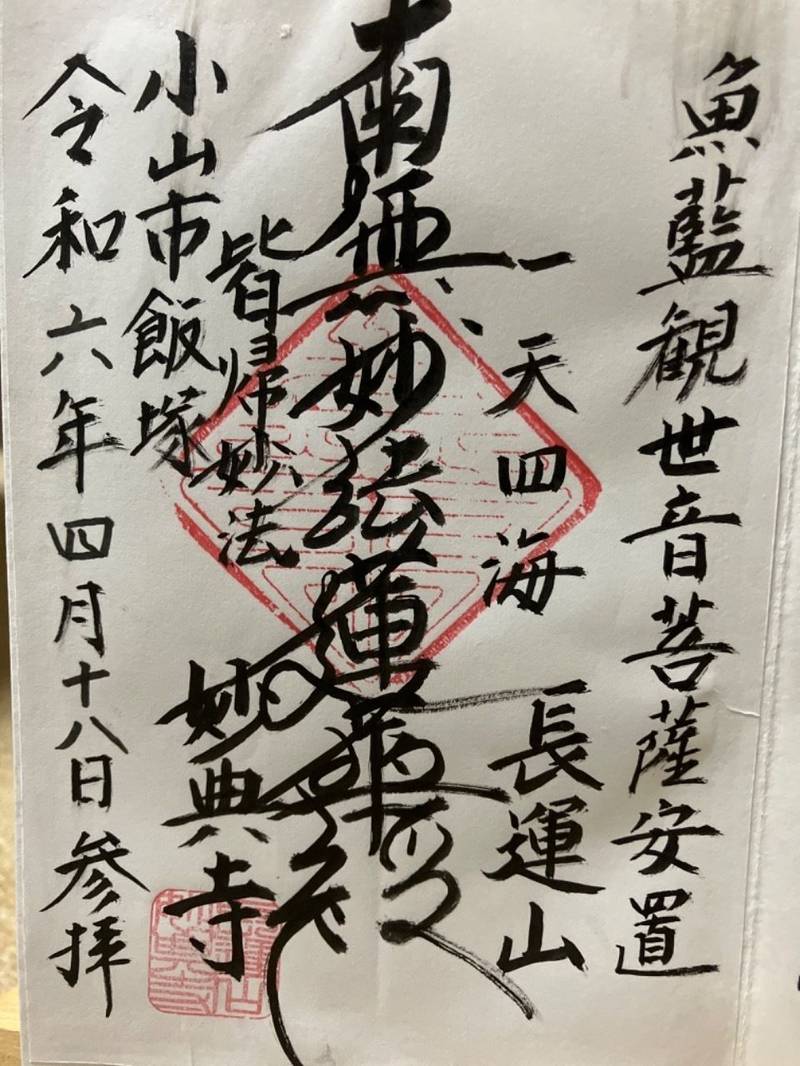 魚藍観世音菩薩安置
一天四海
長運山
南無妙法蓮華経
皆帰妙法
妙典寺
小山市飯塚
令和六年四月十八日参拝